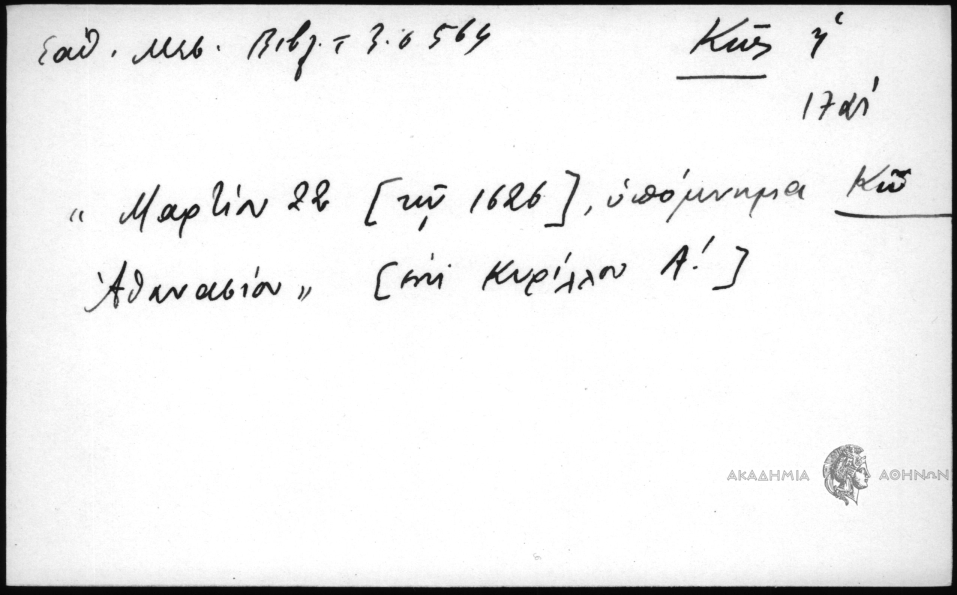 Σαθ. Μεσ. Βιβλ. τ 3. σ 564 Κῶς ἡ
17 αἰ
"Μαρτίου 22 [τοῦ 1626], ὑπόμνημα Κῶ
Ἀθανασίου" [ἐπὶ Κυρίλλου Α΄.]
ΑΚΑΔΗΜΙΑ ΑΘΗΝΩΝ